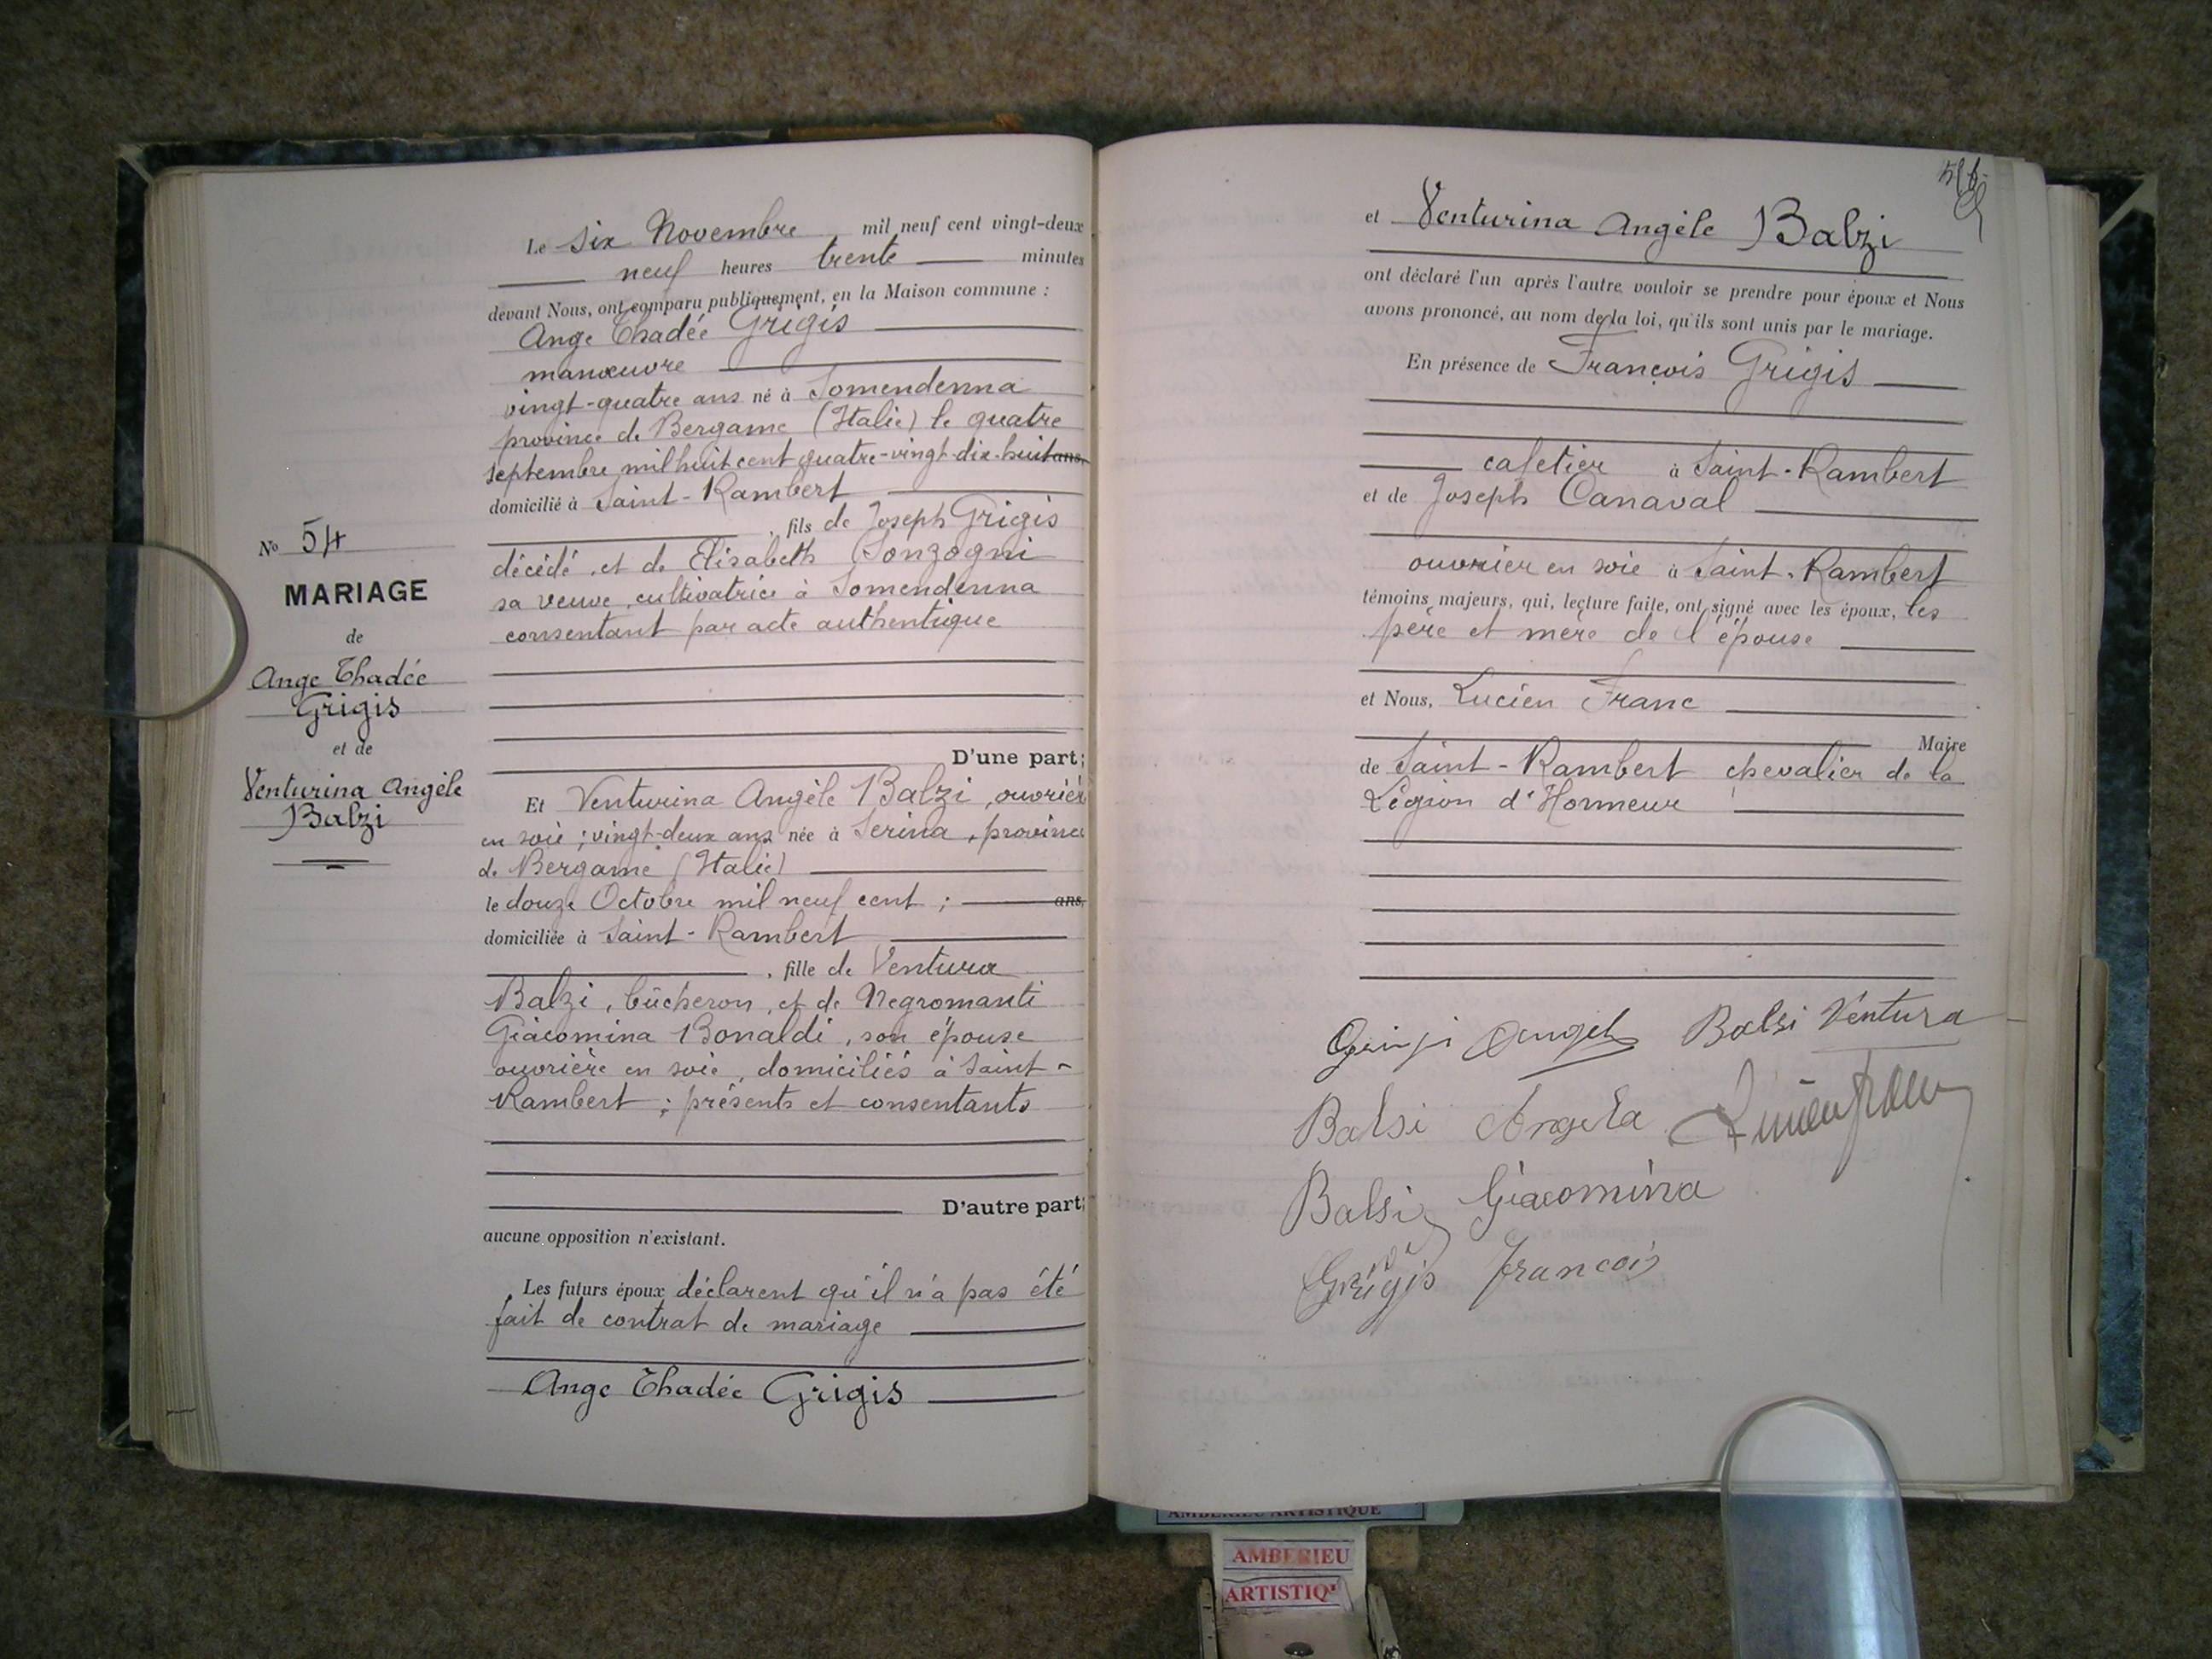 No 54
MARIAGE
de
Ange Thadée
Grigis
et de
Venturina Angèle
Balzi
Le six Novembre mil neuf cent vingt-deux
neuf heures trente minutes
devant Nous, ont comparu publiquement, en la Maison commune :
Ange Thadée Grigis
manœuvre
vingt-quatre ans né à Somendenna
province de Bergame (Italie) le quatre
septembre mil huit cent quatre-vingt-dix-huit ans,
domicilié à Saint-Rambert
, fils de Joseph Grigis
décédé, et de Elisabeth Sonzogni
sa veuve, cultivatrice à Somendenna
consentant par acte authentique
D'une part;
Et Venturina Angèle Balzi, ouvrière
en soie ; vingt-deux ans née à Serina, province
de Bergame (Italie)
le douze Octobre mil neuf cent ; ans,
domiciliée à Saint-Rambert
, fille de Ventura
Balzi, bûcheron, et de Negromanti
Giacomina Bonaldi, son épouse
ouvrière en soie, domiciliés à Saint-
Rambert ; présents et consentants
D'autre part;
aucune opposition n'existant.
Les futurs époux déclarent qu'il n'a pas été
fait de contrat de mariage
Ange Thadée Grigis
et Venturina Angèle Balzi
ont déclaré l'un après l'autre vouloir se prendre pour époux et Nous
avons prononcé, au nom de la loi, qu'ils sont unis par le mariage.
En présence de François Grigis
cafetier à Saint-Rambert
et de Joseph Canaval
ouvrier en soie à Saint-Rambert
témoins majeurs, qui, lecture faite, ont signé avec les époux, les
père et mère de l'épouse
et Nous, Lucien Franc
Maire
de Saint-Rambert chevalier de la
Légion d'Honneur
Balsi Ventura
Balsi Angela
Balsi Giacomina
Grigis Francois
AMBERIEU ARTISTIQUE
AMBERIEU
ARTISTIQ